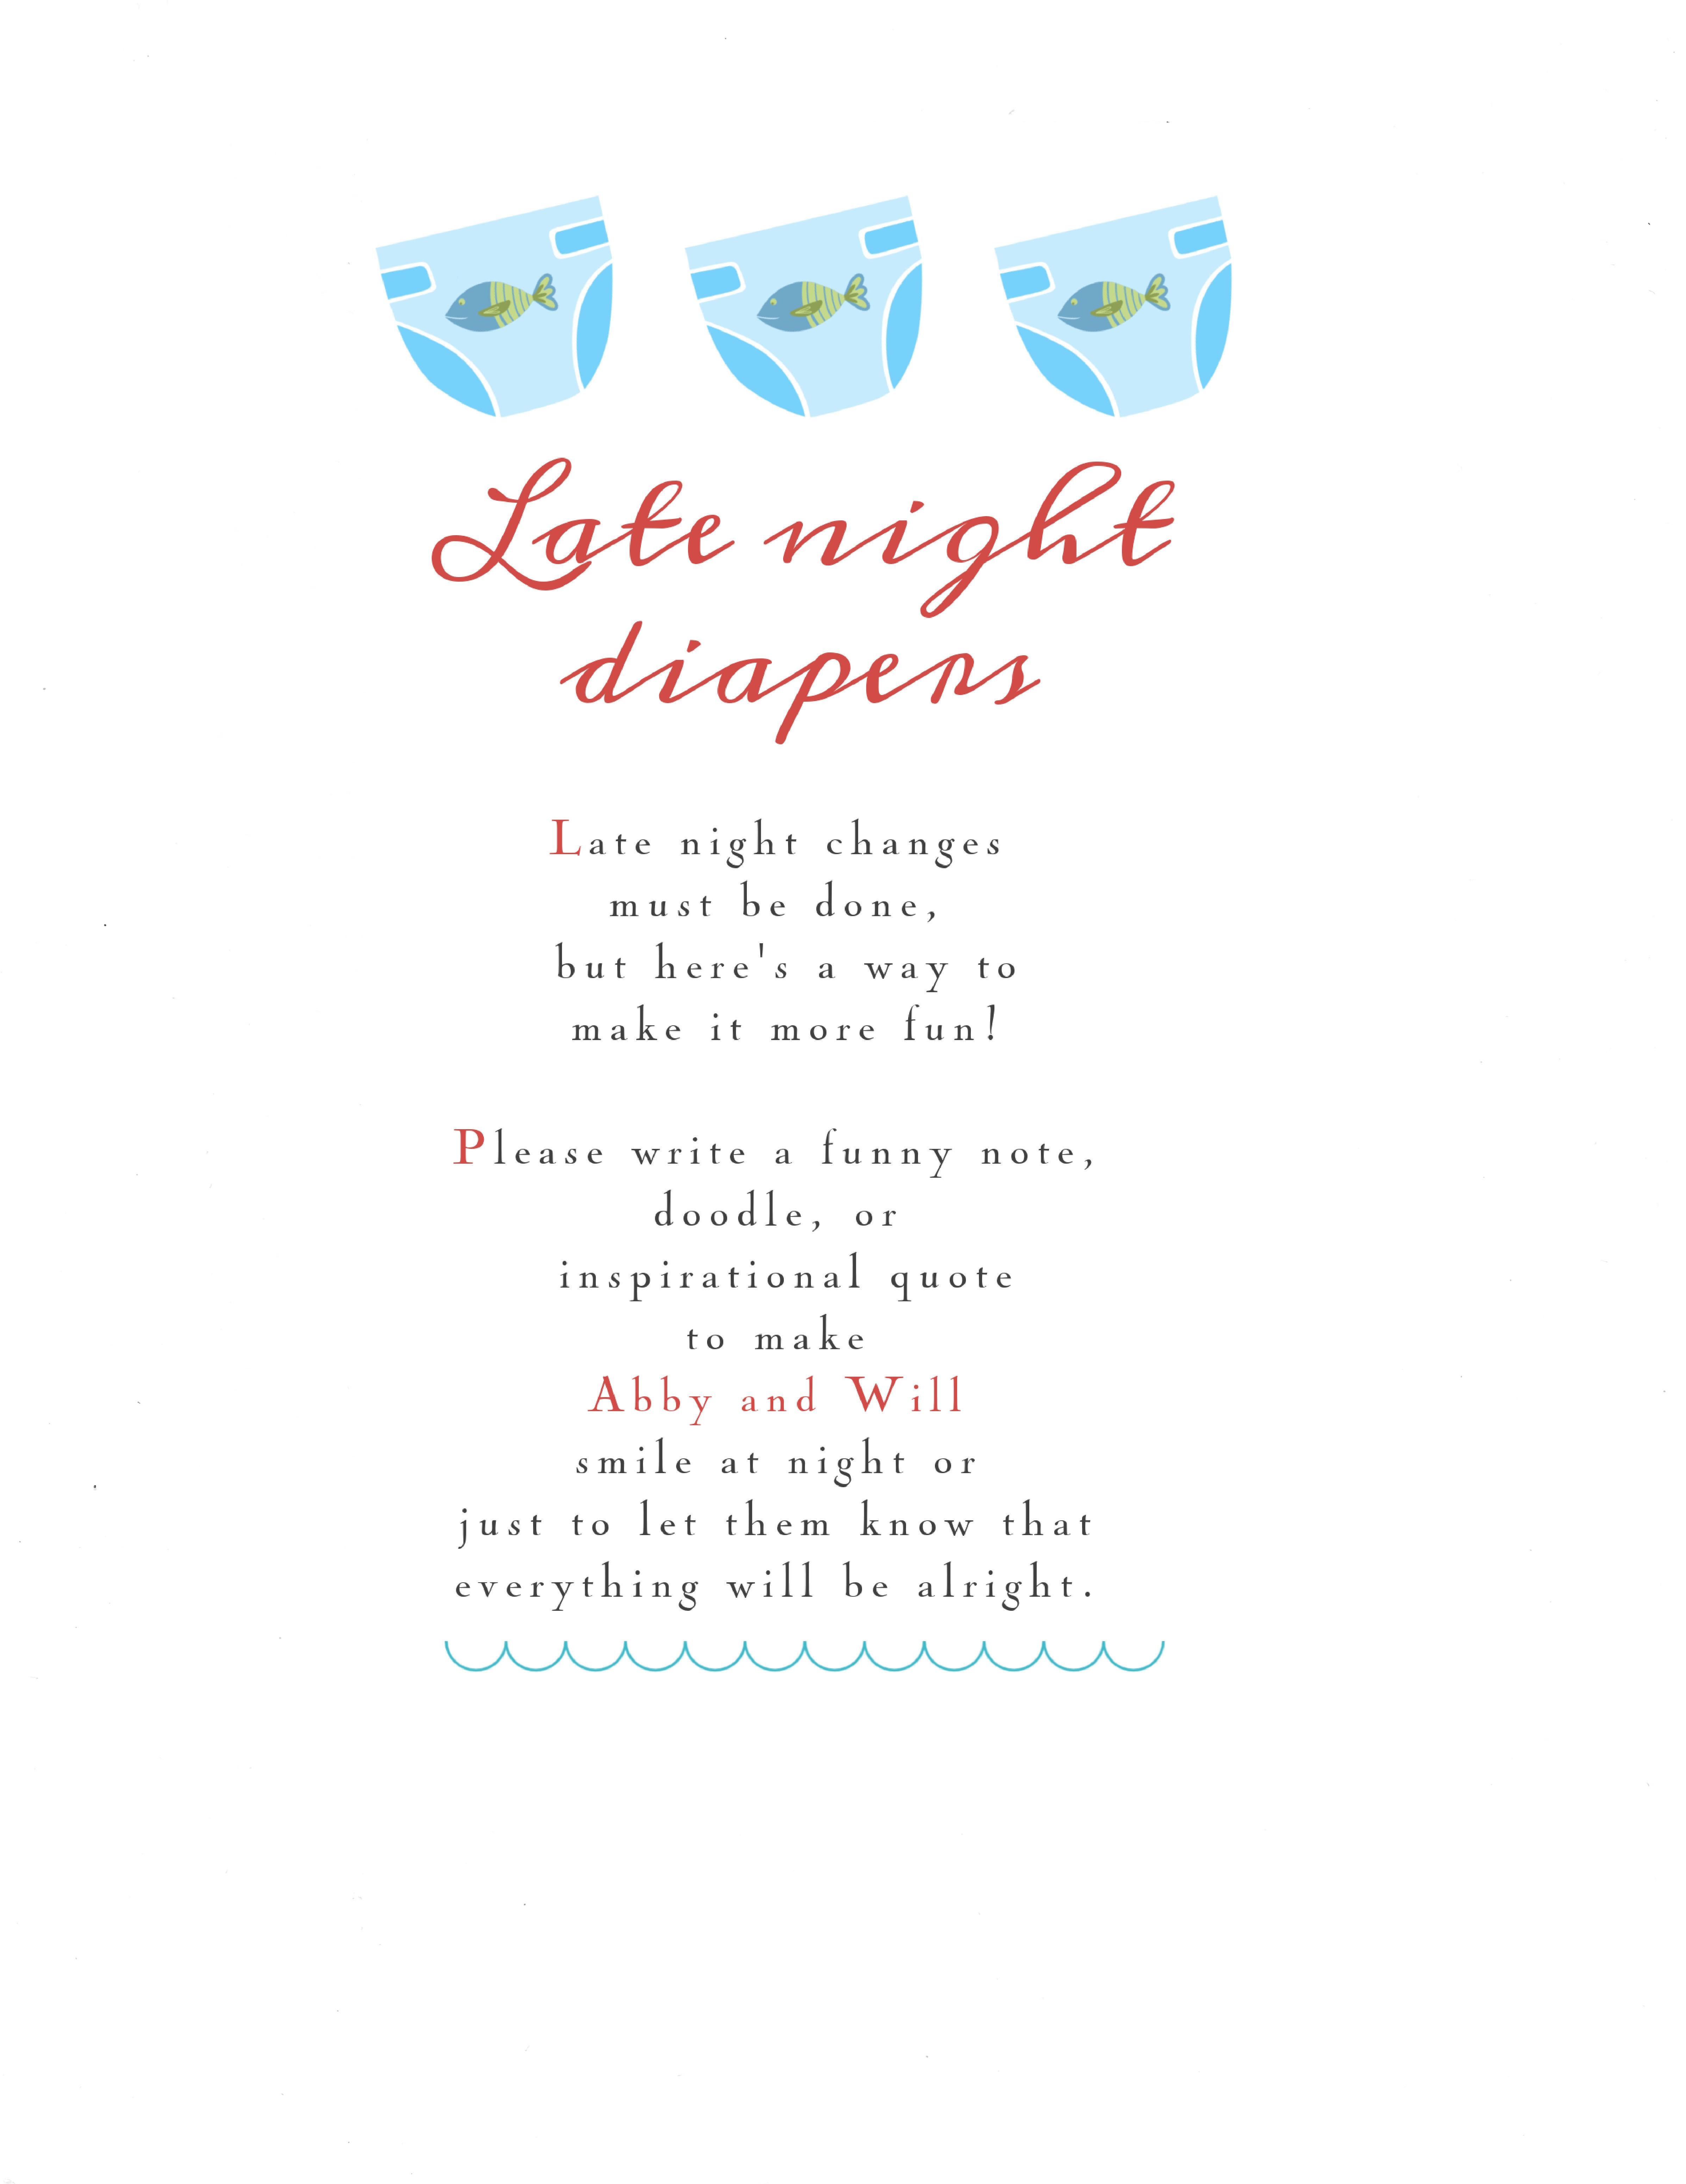 Late night
diapers
Late night changes
must be done,
but here's a way to
make it more fun!
Please write a funny note,
doodle, or
inspirational quote
to make
Abby and Will
smile at night or
just to let them know that
everything will be alright.